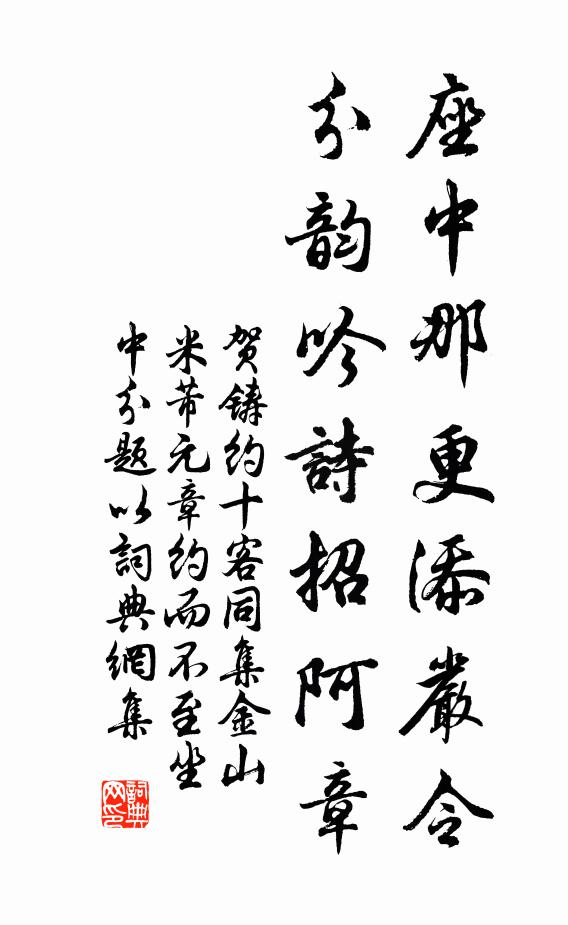 座中那更添嚴令
分韵吟詩招阿章
贺鑄約十客同集金山
米芾元章約而不至坐
中分题以詞典網集
詞典
网印